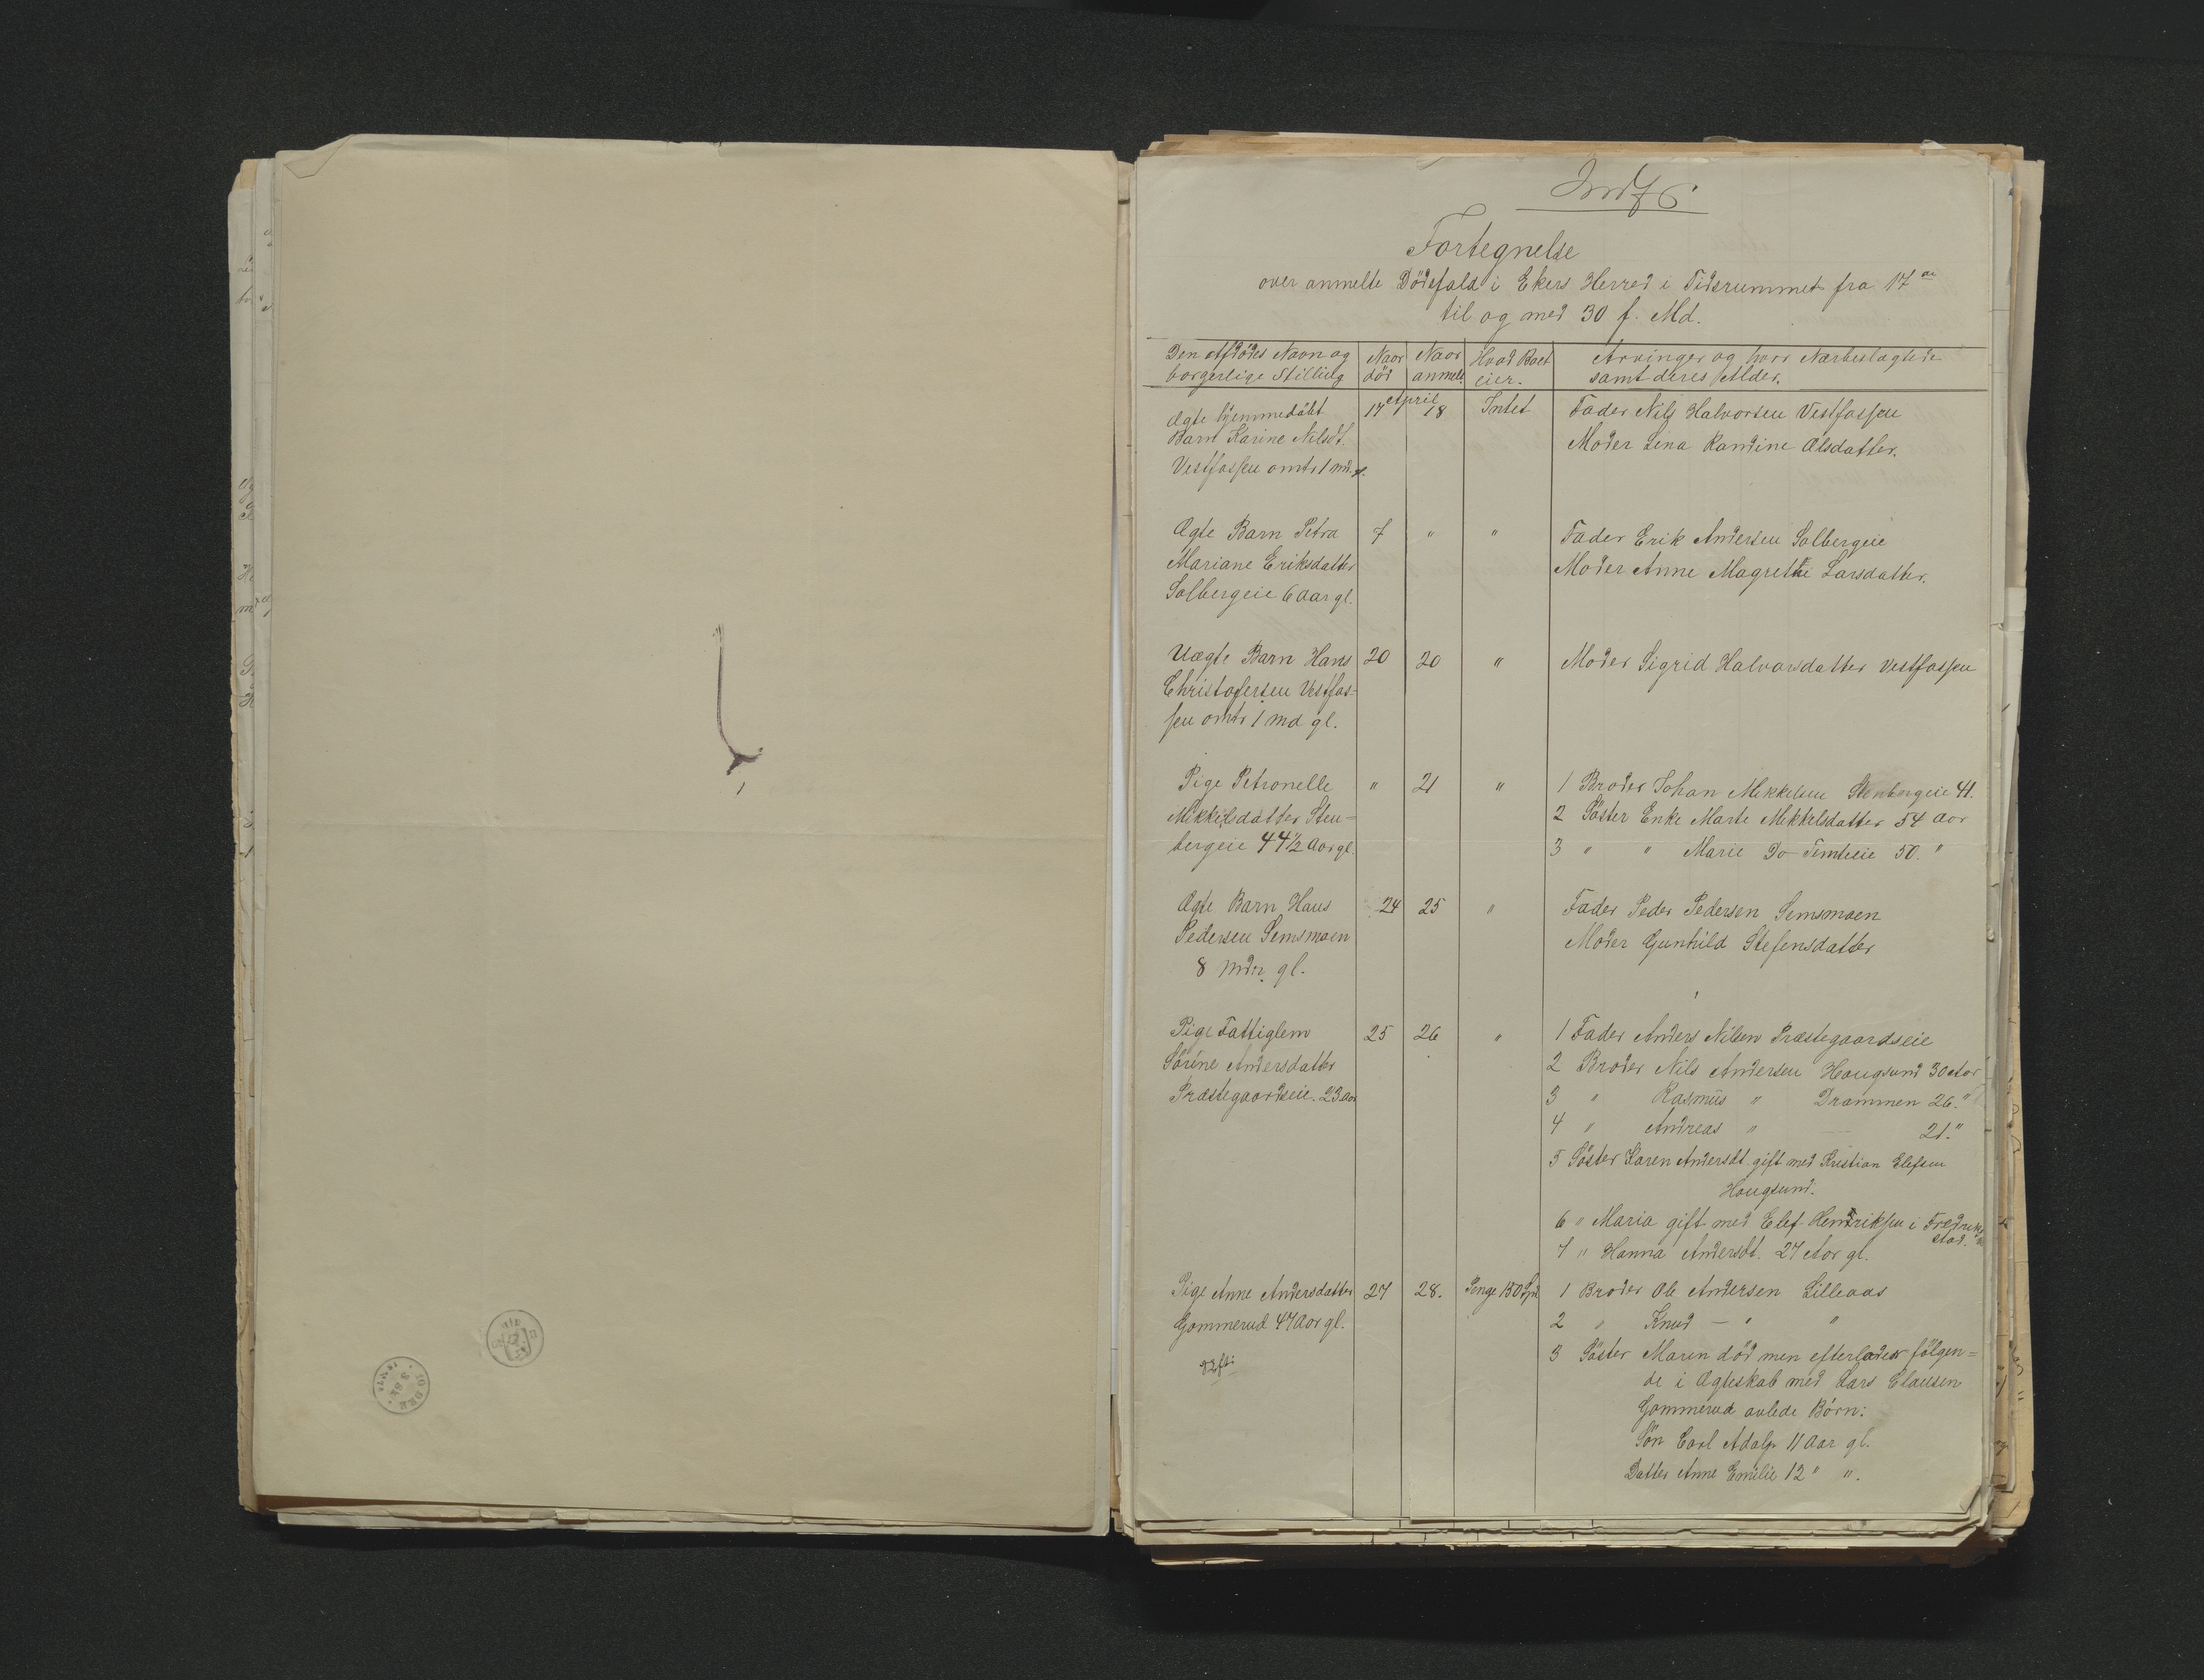 Fortegnelse
over anmelte Dödsfald i Ekers Herred i Tidsrummet fra 17de
til og med 30 f. Md.
Den Afdödes Navn og borgerlige Stilling
Naar död
Naar anmelt
Hvad Boet eier.
Arvinger og hvor Nærbeslægtede samt deres Alder.
April
Ægte hjemmedöbt 17 18 Intet Fader Nils Halvorsen Vestfossen
Barn Karine Nilsdt. Moder Lina Randine Olsdatter.
Vestfossen omtr 1 md gl.
Ægte Barn Petra 7 " " Fader Erik Andersen Solbergeie
Mariane Eriksdatter Moder Anne Magrethe Larsdatter.
Solbergeie 6 Aar gl.
Uægte Barn Hans 20 20 " Moder Sigrid Halvorsdatter Vestfossen
Christofersen Vestfos-
sen omtr 1 md gl.
Pige Petronelle " 21 " 1 Broder Johan Mikkelsen Stenbergeie 41.
Mikkelsdatter Sten= 2 Söster Enke Marte Mikkelsdatter 54 Aar
bergeie 44½ Aar gl. 3 " " Marie Do Temteeie 50. "
Ægte Barn Hans 24 25 " Fader Peder Pedersen Semsmoen
Pedersen Semsmoen Moder Gunhild Stefensdatter
8 mdr. gl.
Pige Fattiglem 25 26 " 1 Fader Anders Nilsen Præstegaardseie
Sörine Andersdatter 2 Broder Nils Andersen Hougsund 30 Aar
Præstegaardseie. 23 Aar 3 " Rasmus " Drammen 26. "
4 " Andreas " — 21. "
5 Söster Karen Andersdt. gift med Kristian Elefsen
Hougsund.
6 " Maria gift med Elef Hendriksen i Fredrik-
stad.
7 " Hanna Andersdt. 27 Aar gl.
Pige Anne Andersdatter 27 28. Penge 150 Spd 1 Broder Ole Andersen Lilleaas
Gommerud 47 Aar gl. 2 " Knud — " "
3 Söster Maren död men efterlader fölgen=
de i Ægteskab med Lars Clausen
Gommerud avlede Börn:
Sön Carl Adolp 11 Aar gl.
Datter Anne Emilie 12 " ".